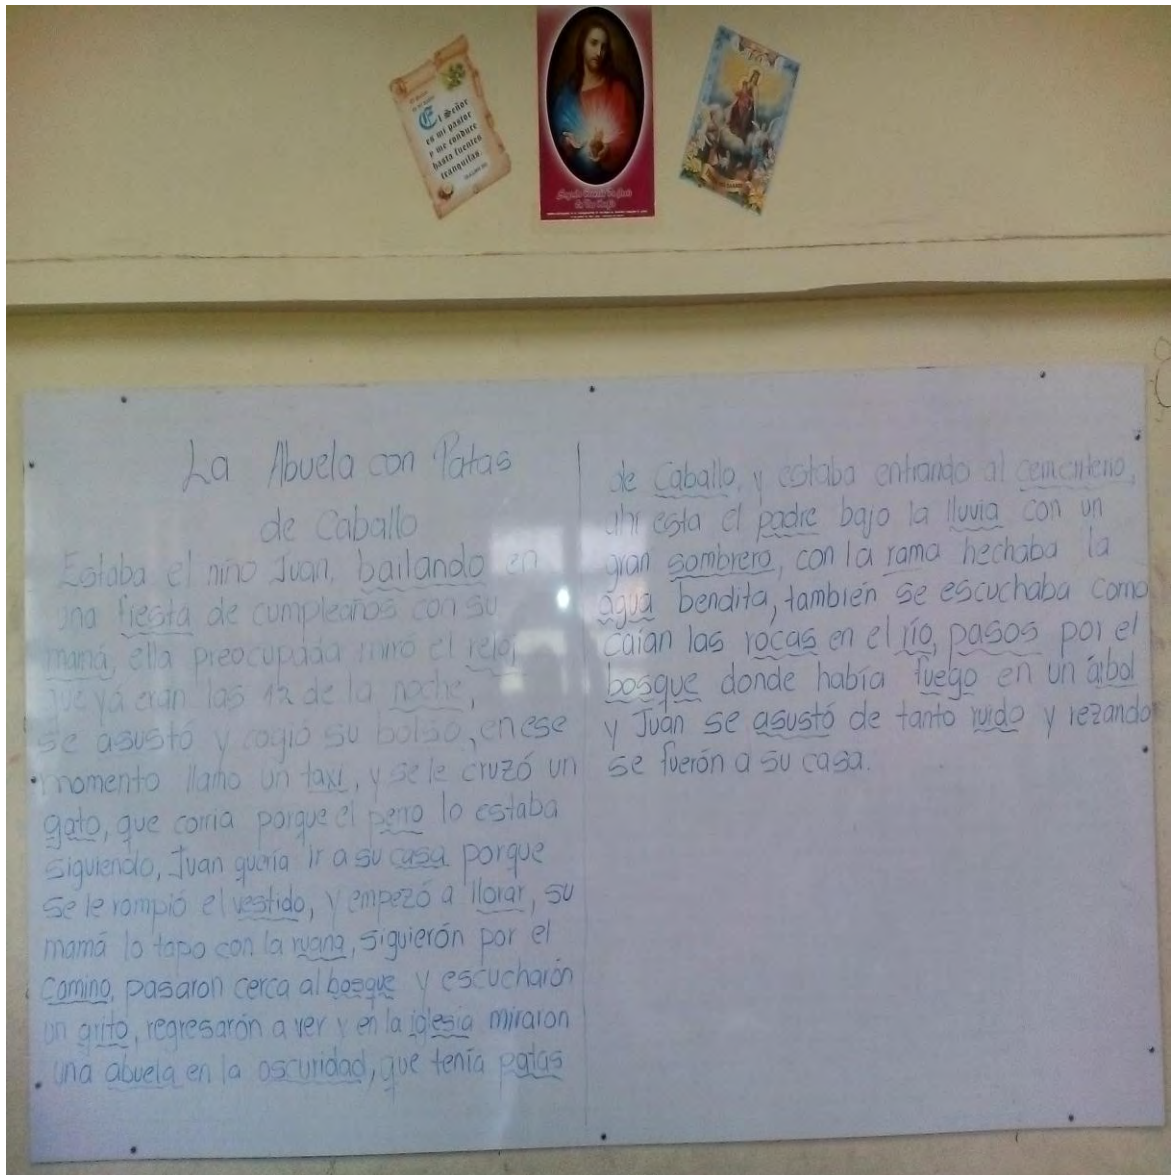 El Señor
es mi pastor
y me conduce
hasta fuentes
tranquilas.
La Abuela con Patas
de Caballo
Estaba el niño Juan, bailando en
una fiesta de cumpleaños con su
mamá, ella preocupada miró el reloj
que yá eran las 12 de la noche,
se asustó y cogió su bolso, en ese
momento llamo un taxi, y se le cruzó un
gato, que corria porque el perro lo estaba
siguiendo, Juan quería ir a su casa porque
se le rompió el vestido, y empezó a llorar, su
mamá lo tapo con la ruana, siguierón por el
camino, pasaron cerca al bosque y escucharón
un grito, regresarón a ver y en la iglesia miraron
una abuela en la oscuridad, que tenía patas
de Caballo, y estaba entrando al cementerio,
ahi esta el padre bajo la lluvia con un
gran sombrero, con la rama hechaba la
água bendita, también se escuchaba como
caían las rocas en el río, pasos por el
bosque donde había fuego en un árbol
y Juan se asustó de tanto ruido y rezando
se fuerón a su casa.